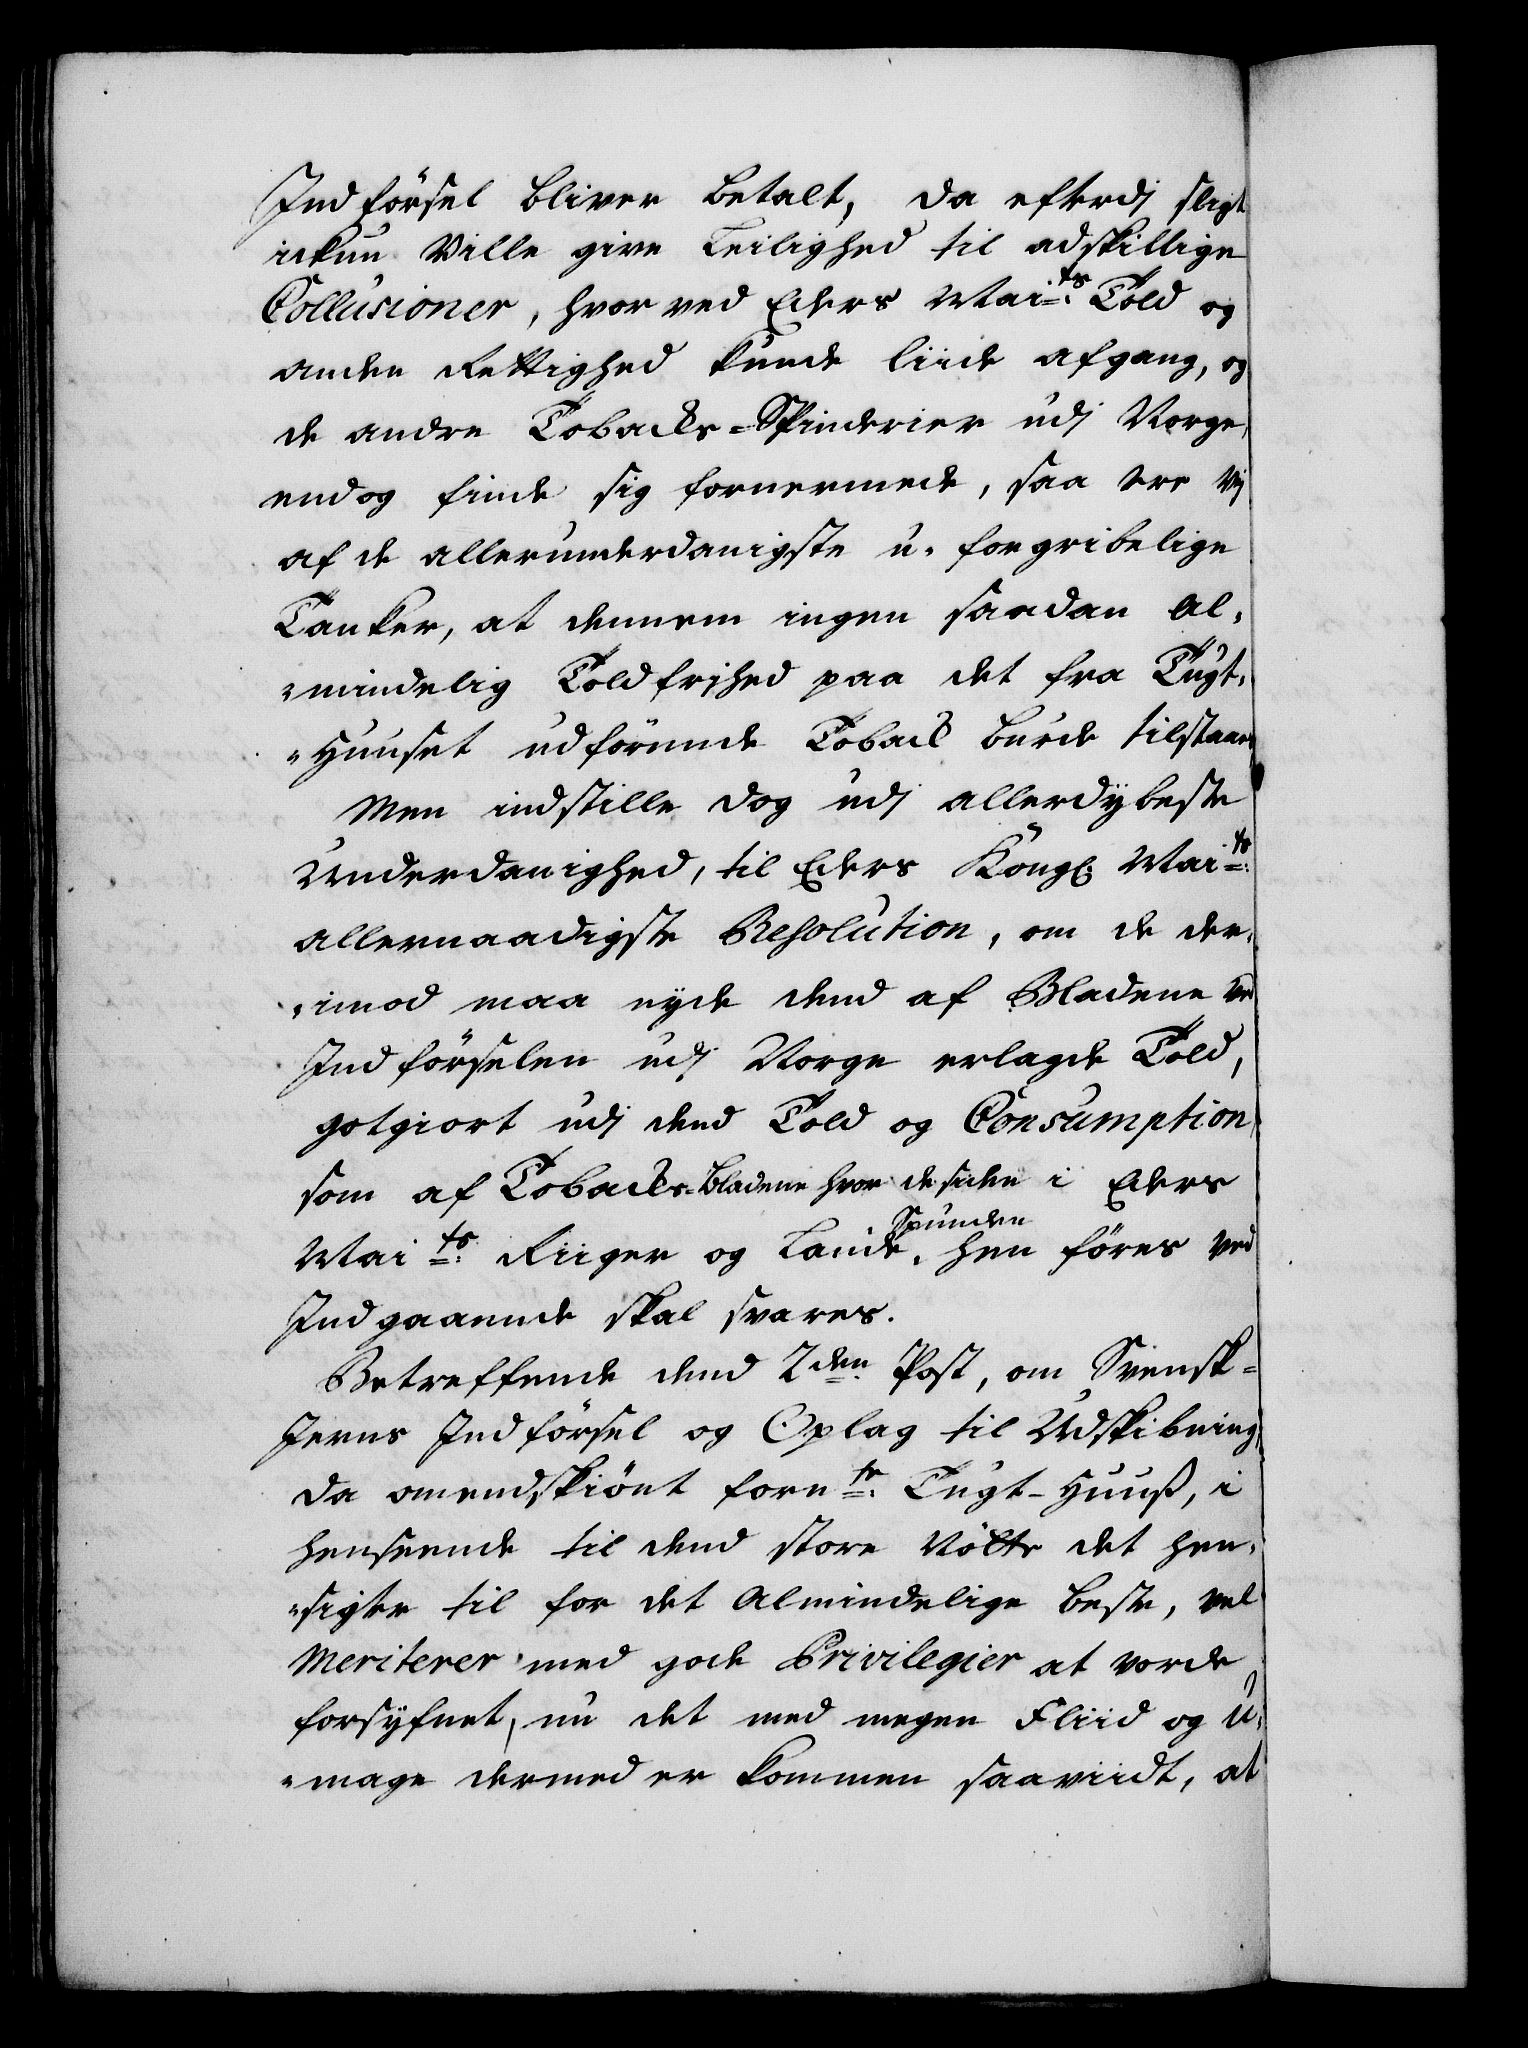 Indförsel bliver betalt, da efterdj sligt
ickun Ville give Leilighed til adskillige
Collusioner, hvorved Eders Mai:ts Told og
anden Rettighed kunde liide afgang, og
de andre Tobacks-Spinderier udj Norge,
endog finde sig fornermede, saa ere Vj
af de allerunderdanigste u-forgribelige
Tanker, at dennem ingen saadan Al-
-mindelig Toldfrjhed paa det fra Tugt-
-Huuset udförende Toback burde tilstaaes
Men indstille dog udj allerdybeste
Underdanighed, til Eders Kongl: Mai:ts
allernaadigste Resolution, om de der-
-imod maa nyde dend af Bladene ved
Indförselen udj Norge erlagde Told,
gotgiort udj dend Told og Consumption,
som af Tobacks-Bladene hvor de siden i Eders
Mai:ts Riiger og Lande, Spunden hen föres ved
Indgaaende skal svares.
Betreffende dend 2den Post, om Svensk-
Jerns Indförsel og Oplag til Udskibning,
da omendskiönt forn:te Tugt-Huuß, i
henseende til dend store Nötte det hen-
-sigter til for det Almindelige beste, vel
Meriterer med gode Privilegier at vorde
forsyfnet, nu det med megen Fliid og U-
-mage dermed er kommen saaviidt, at